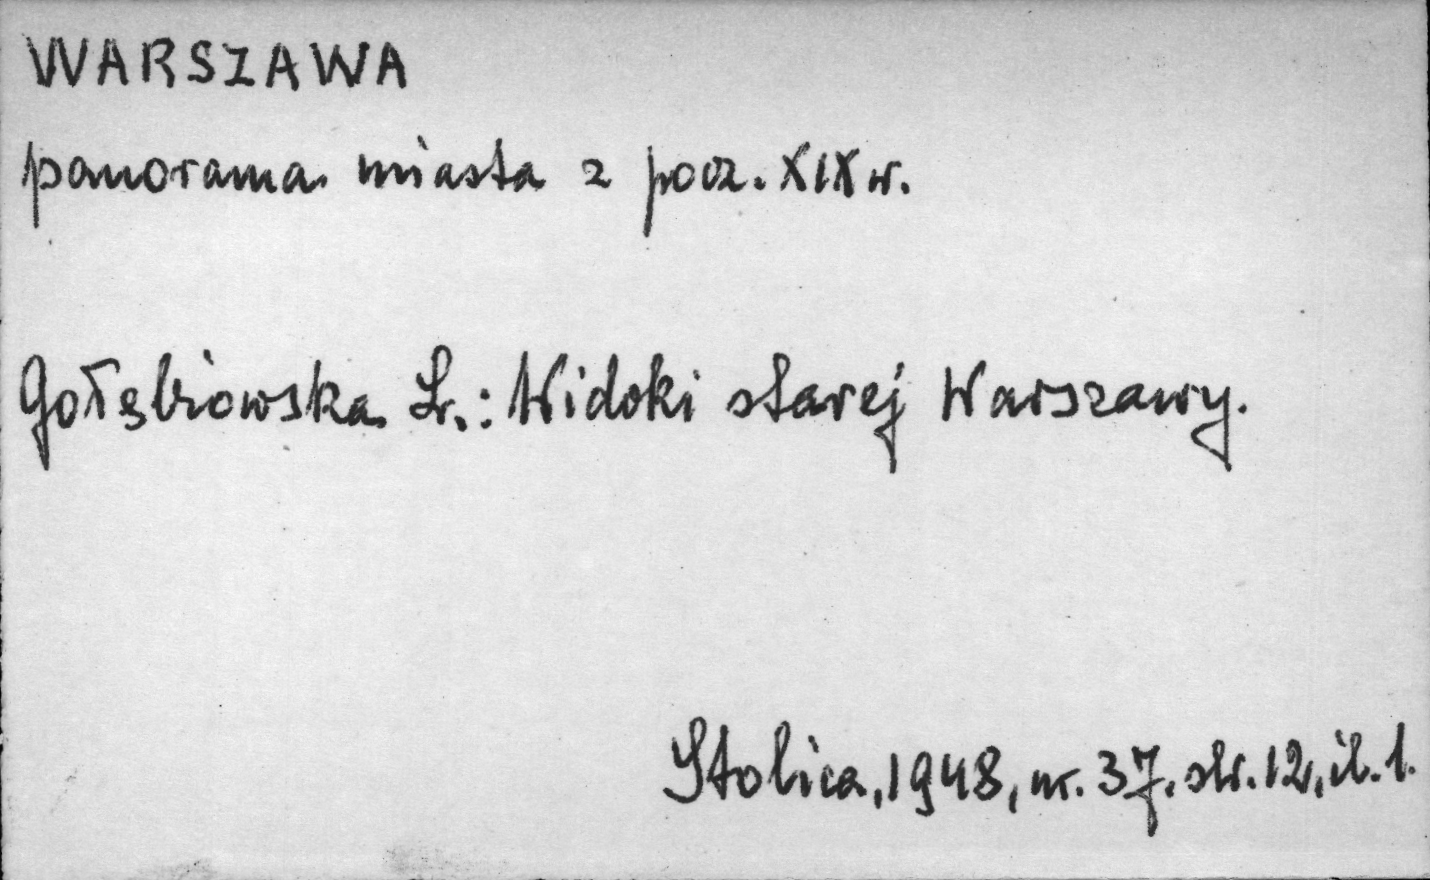 WARSZAWA
panorama miasta z pocz. XIX w.
Gołębiowska Ir.: Widoki starej Warszawy.
Stolica, 1948, nr. 37, str. 12, il. 1.